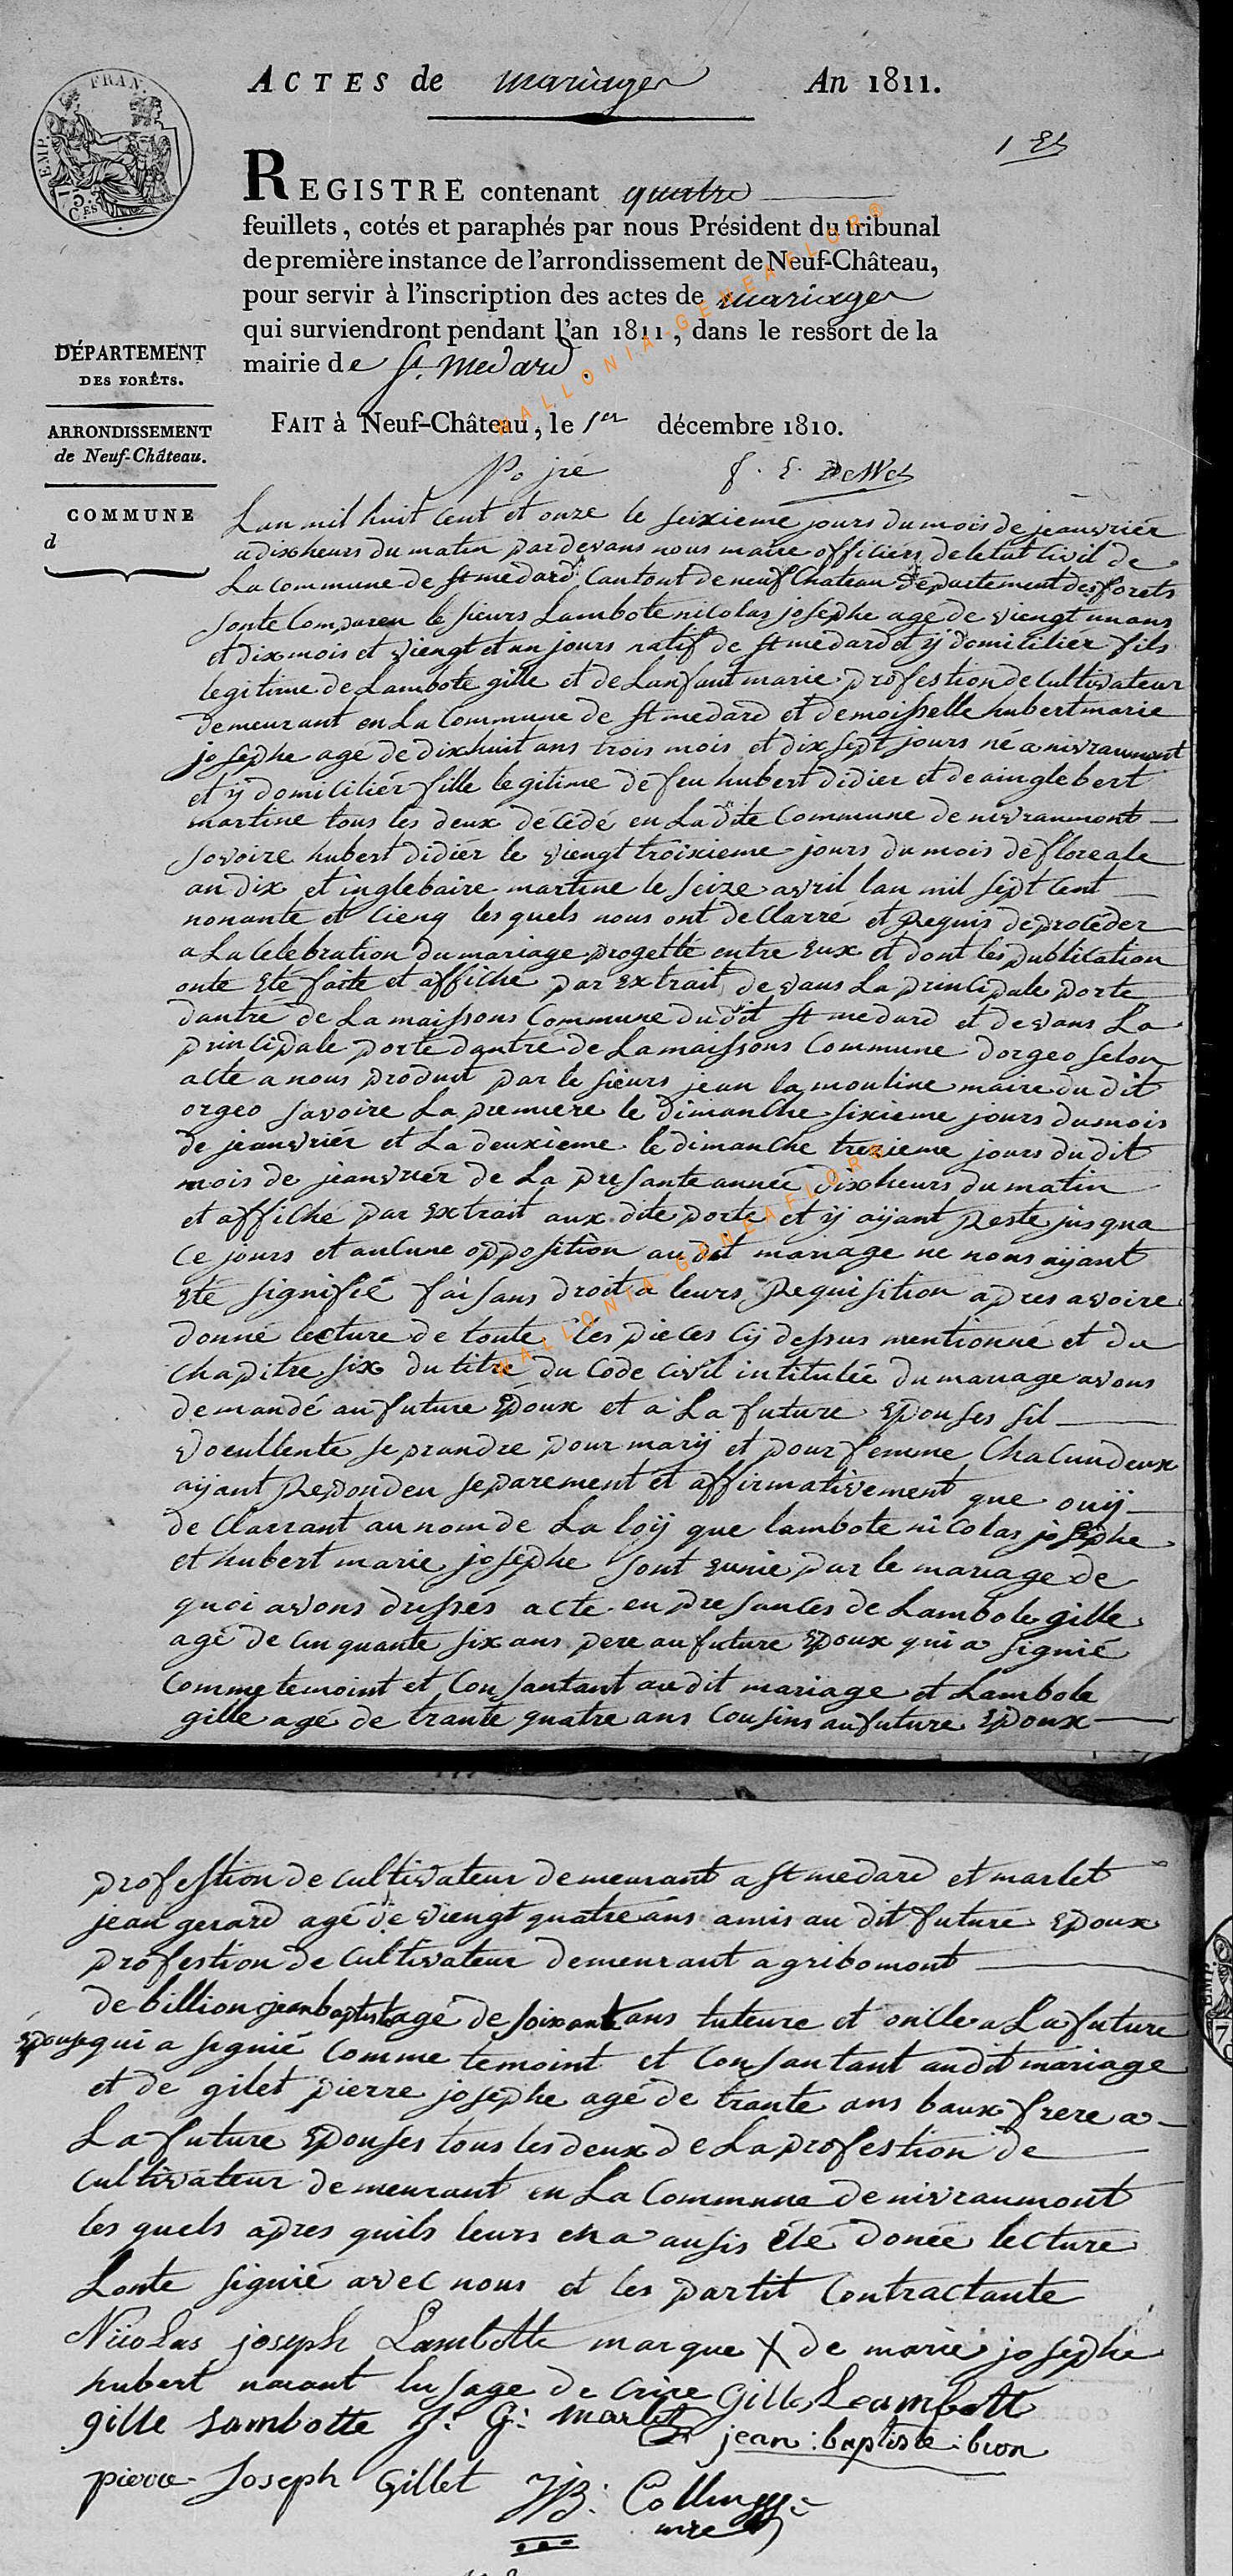 ACTES de mariages An 1811.
EMP. FRAN.
75
CES
1 Et
REGISTRE contenant quatre
feuillets, cotés et paraphés par nous Président du tribunal
de première instance de l'arrondissement de Neuf-Château,
pour servir à l'inscription des actes de mariages
qui surviendront pendant l'an 1811, dans le ressort de la
mairie de St. Medard.
DÉPARTEMENT
DES FORÊTS.
ARRONDISSEMENT
de Neuf-Château.
COMMUNE
d
FAIT à Neuf-Château, le 1er décembre 1810.
Lan mil huit Cent et onze le seixieme jours du mois de jeanvriér
a dix heurs du matin par devans nous maire officiers de letat Civil de
La Commune de St medard Cantont de neufChateau Departement des forets
sonte Compareu le sieurs Lambote nicolas josephe agé de viengt un ans
et dix mois et viengt et un jours natif de St medard et ÿ domicilier fils
legitime de Lambote gille et de Lanfant marie profestion de Cultivateur
demeurant en La Commune de St medard et demoisselle hubert marie
josephe agé de dixhuit ans trois mois et dix sept jours né a nivraumont
et ÿ domiciliér fille legitime de feu hubert didier et de ainglebert
martine tous les deux décédé en La dite Commune de nivraumont
sovoire hubert didiér le viengt troixieme jours du mois de floreale
an dix et inglebaire martine le seize avril lan mil sept Cent
nonante et Cienq les quels nous ont deClarré et Requis de proceder
a La Celebration du mariage progetté entre eux et dont les publication
onte eté faite et affiché par extrait devans La principale porte
dantré de La maissons Commune du dit St medard et devans La
principale porte dantré de La maissons Commune dorgeo selon
acte a nous produit par le sieurs jean la mouline maire du dit
orgeo savoire La premiere le dimanche sixieme jours du mois
de jeanvriér et La deuxieme le dimanche trezieme jours du dit
mois de jeanvriér de La presante année dix heurs du matin
et affiché par extrait aux dite porte et ÿ aÿant Resté jus qua
Ce jours et auCune opposition au dit mariage ne nous aÿant
eté signifié faisans droit a leurs Requisition apres avoire
donné lecture de toute les pieces Cÿ dessus mentionné et du
Chapitre six du titre du Code Civil intitulée du mariage avons
demandé au future Epoux et a La future Epouses sil
voeullente se prandre pour marÿ et pour femme Chacun deux
aÿant Repondeu separement et affirmativement que ouÿ
de Clarrant au nom de La loÿ que lambote nicolas josephe
et hubert marie josephe sont eunie par le mariage de
quoi avons dressés acte en presances de Lambote gille
agé de Cinquante six ans pere au future Epoux qui a signié
Comme temoint et Consantant audit mariage et Lambote
gille agé de trante quatre ans Cousins au future Epoux
profestion de Cultivateur demeurant a St medard et marlet
jean gerard agé de viengt quatre ans amis au dit future Epoux
profestion de Cultivateur demeurant a gribomont
de billion jean baptist agé de soixante ans tuteure et oncle a La future
Epouse qui a signié Comme temoint et Consantant au dit mariage
et de gilet pierre josephe agé de trante ans baux frere a
La future Epouses tous les deux de La profestion de
Cultivateur demeurant en La Commune de nivraumont
les quels apres quils leurs en a ausis eté donée lecture
Lonte signié avec nous et les partit Contractante
Nicolas joseph Lambotte marque X de marie josephe
hubert naiant lusage de crire Gilles Leambott
gille Lambotte J: G: marlet
jean : baptiste : bion
pierre Joseph Gillet JB: Collignon
mre
WALLONIA-GENEAFLORE®
WALLONIA-GENEAFLORE